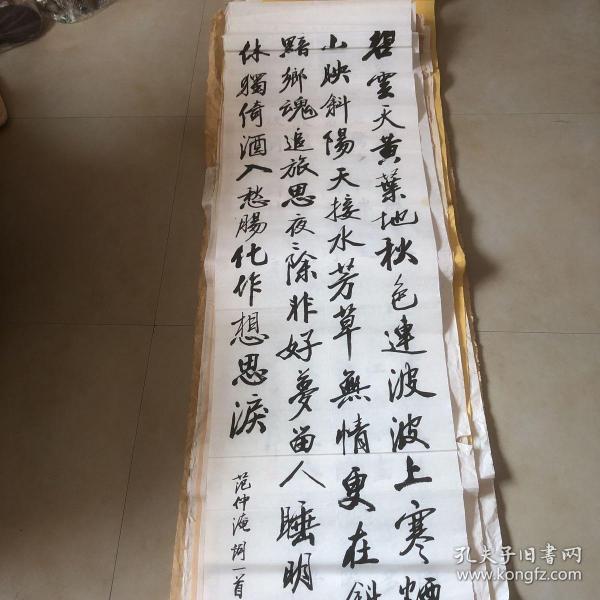 碧雲天黃葉地秋色連波波上寒煙
山映斜陽天接水芳草無情更在斜
黯鄉魂追旅思夜夜除非好夢留人睡明
休獨倚酒入愁腸化作想思淚
范仲淹詞一首
孔夫子旧书网
www.kongfz.com